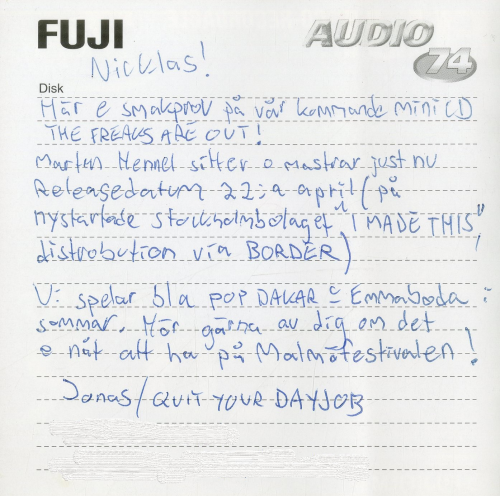 FUJI
AUDIO
74
Nicklas!
Disk
Här e smakprov på vår kommande mini CD
THE FREAKS ARE OUT!
Martin Hennel sitter o mastrar just nu
Releasedatum 22:a april (på
nystartade stockholmbolaget "I MADE THIS",
distrobution via BORDER)
Vi spelar bla POP DAKAR o Emmaboda i
sommar. Hör gärna av dig om det
e nåt att ha på Malmöfestivalen!
Jonas/QUIT YOUR DAYJOB